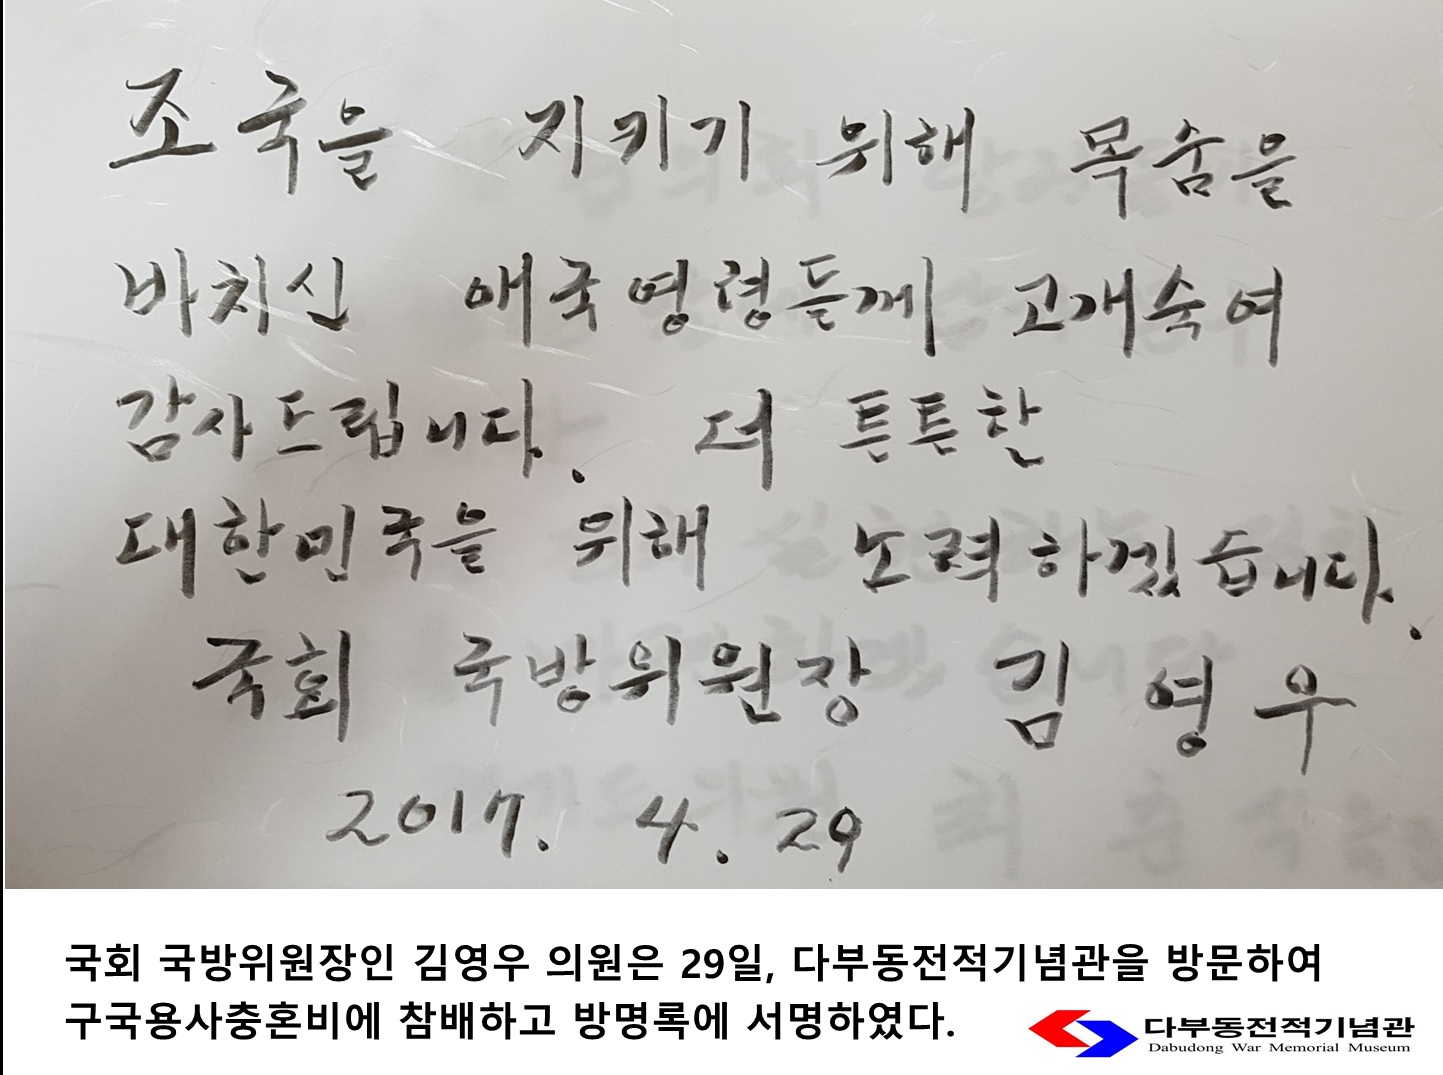 조국을 지키기 위해 목숨을
바치신 애국영령들께 고개숙여
감사드립니다. 더 튼튼한
대한민국을 위해 노력하겠습니다.
국회 국방위원장 김영우
2017. 4. 29
국회 국방위원장인 김영우 의원은 29일, 다부동전적기념관을 방문하여
구국용사충혼비에 참배하고 방명록에 서명하였다.
다부동전적기념관
Dabudong War Memorial Museum